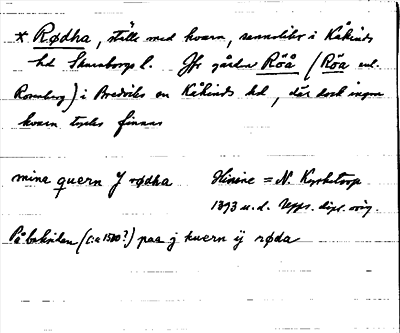 * Rødha, ställe med kvarn, sannolikt i Kåkinds
hd Skaraborgs l. Jfr gården Röå (Röa enl.
Rosenberg) i Bredvik en Kåkinds hd, där dock ingen
kvarn tycks finnas
mina quern J rødha
Hinine = N. Kyrketorp
1393 u.d. Upps. dipl. orig.
På baksidan (c:a 1500?) paa j kwern ij røda